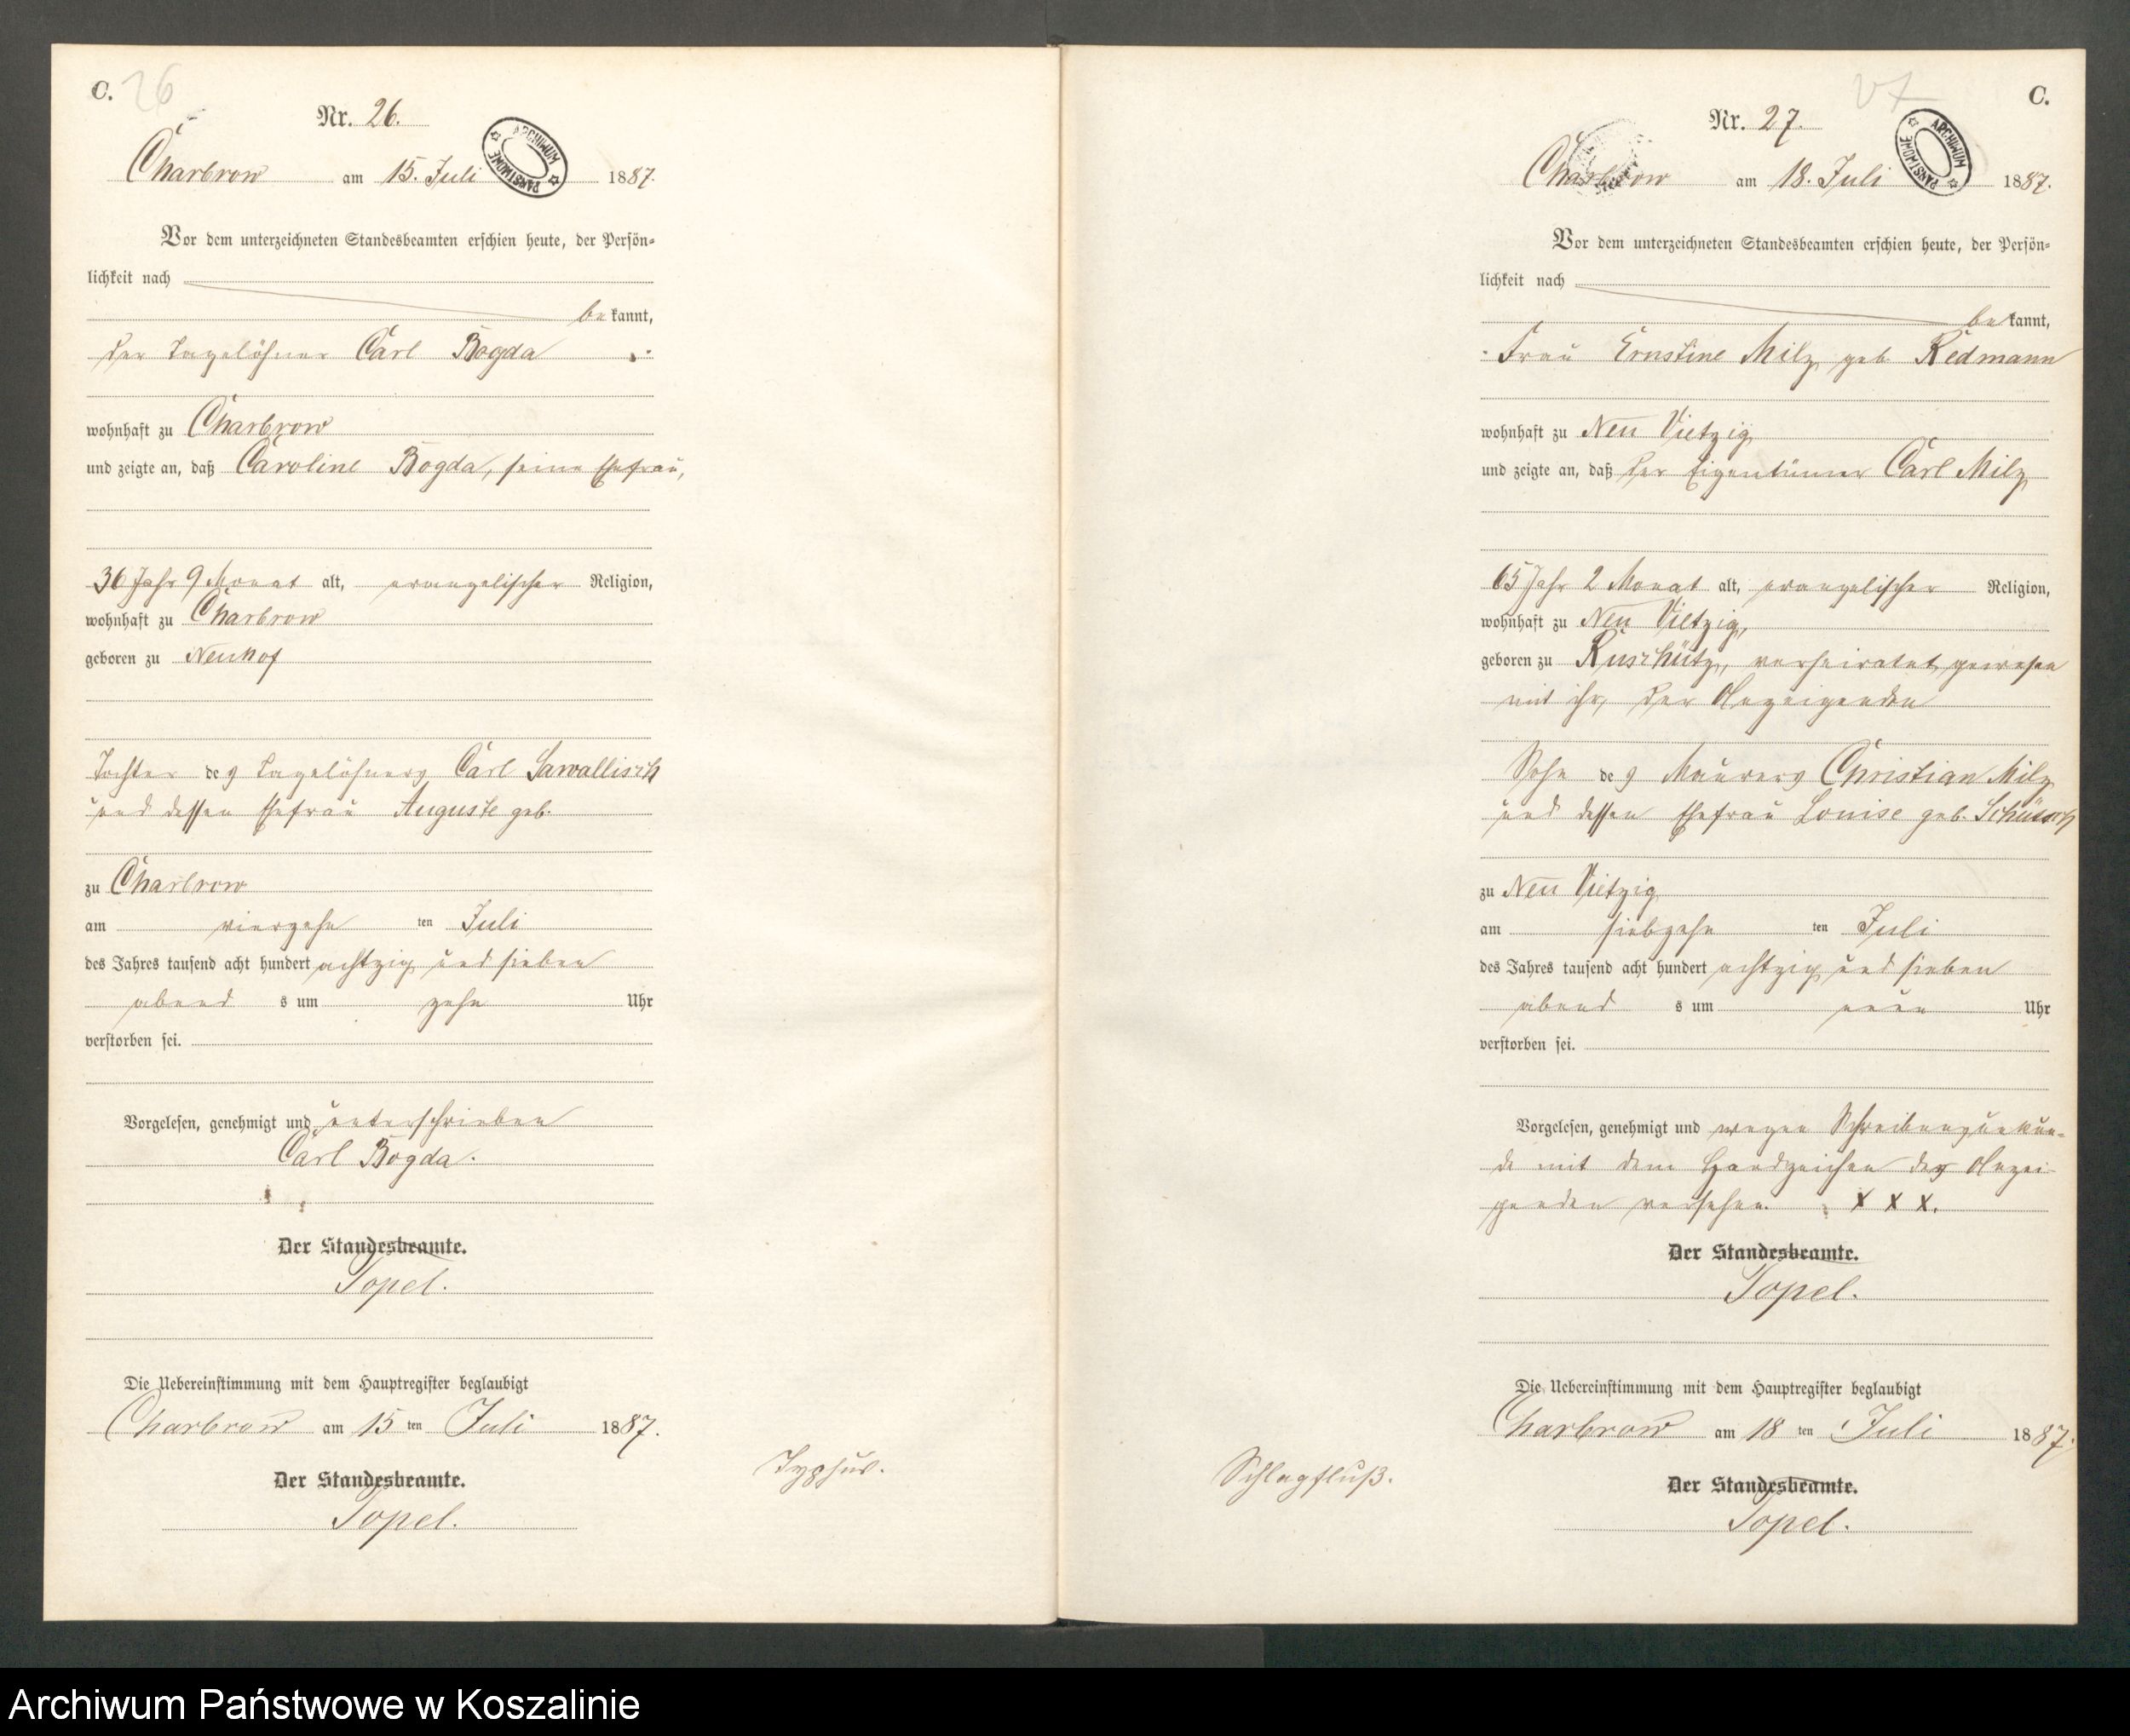 C. 26
Nr. 26.
ARCHIWUM PAŃSTWOWE
Charbrow am 15. Juli 1887.
Vor dem unterzeichneten Standesbeamten erschien heute, der Persön-
lichkeit nach
bekannt,
der Tagelöhner Carl Bogda
wohnhaft zu Charbrow
und zeigte an, daß Caroline Bogda, seine Ehefrau,
36 Jahr 9 Monat alt, evangelischer Religion,
wohnhaft zu Charbrow
geboren zu Neuhof
Tochter des Tagelöhners Carl Sawallisch
und dessen Ehefrau Auguste geb.
zu Charbrow
am vierzehn ten Juli
des Jahres tausend acht hundert achtzig und sieben
abend s um zehn Uhr
verstorben sei.
Vorgelesen, genehmigt und unterschrieben
Carl Bogda.
Der Standesbeamte.
Topel.
Die Uebereinstimmung mit dem Hauptregister beglaubigt
Charbrow am 15 ten Juli 1887.
Der Standesbeamte.
Topel.
Typhus.
27 C.
Nr. 27.
ARCHIWUM PAŃSTWOWE
Charbrow am 18. Juli 1887.
Vor dem unterzeichneten Standesbeamten erschien heute, der Persön-
lichkeit nach
bekannt,
Frau Ernstine Milz geb. Redmann
wohnhaft zu Neu Vietzig
und zeigte an, daß der Eigentümer Carl Milz
65 Jahr 2 Monat alt, evangelischer Religion,
wohnhaft zu Neu Vietzig,
geboren zu Kuschütz, verheiratet gewesen
mit ihr, der Anzeigenden
Sohn des Maurers Christian Milz
und dessen Ehefrau Louise geb.
zu Neu Vietzig
am siebzehn ten Juli
des Jahres tausend acht hundert achtzig und sieben
abend s um neun Uhr
verstorben sei.
Vorgelesen, genehmigt und wegen Schreibensunkun-
de mit dem Handzeichen der Anzei-
genden versehen. X X X.
Der Standesbeamte.
Topel.
Die Uebereinstimmung mit dem Hauptregister beglaubigt
Charbrow am 18 ten Juli 1887.
Der Standesbeamte.
Topel.
Schlagfluß.
Archiwum Państwowe w Koszalinie